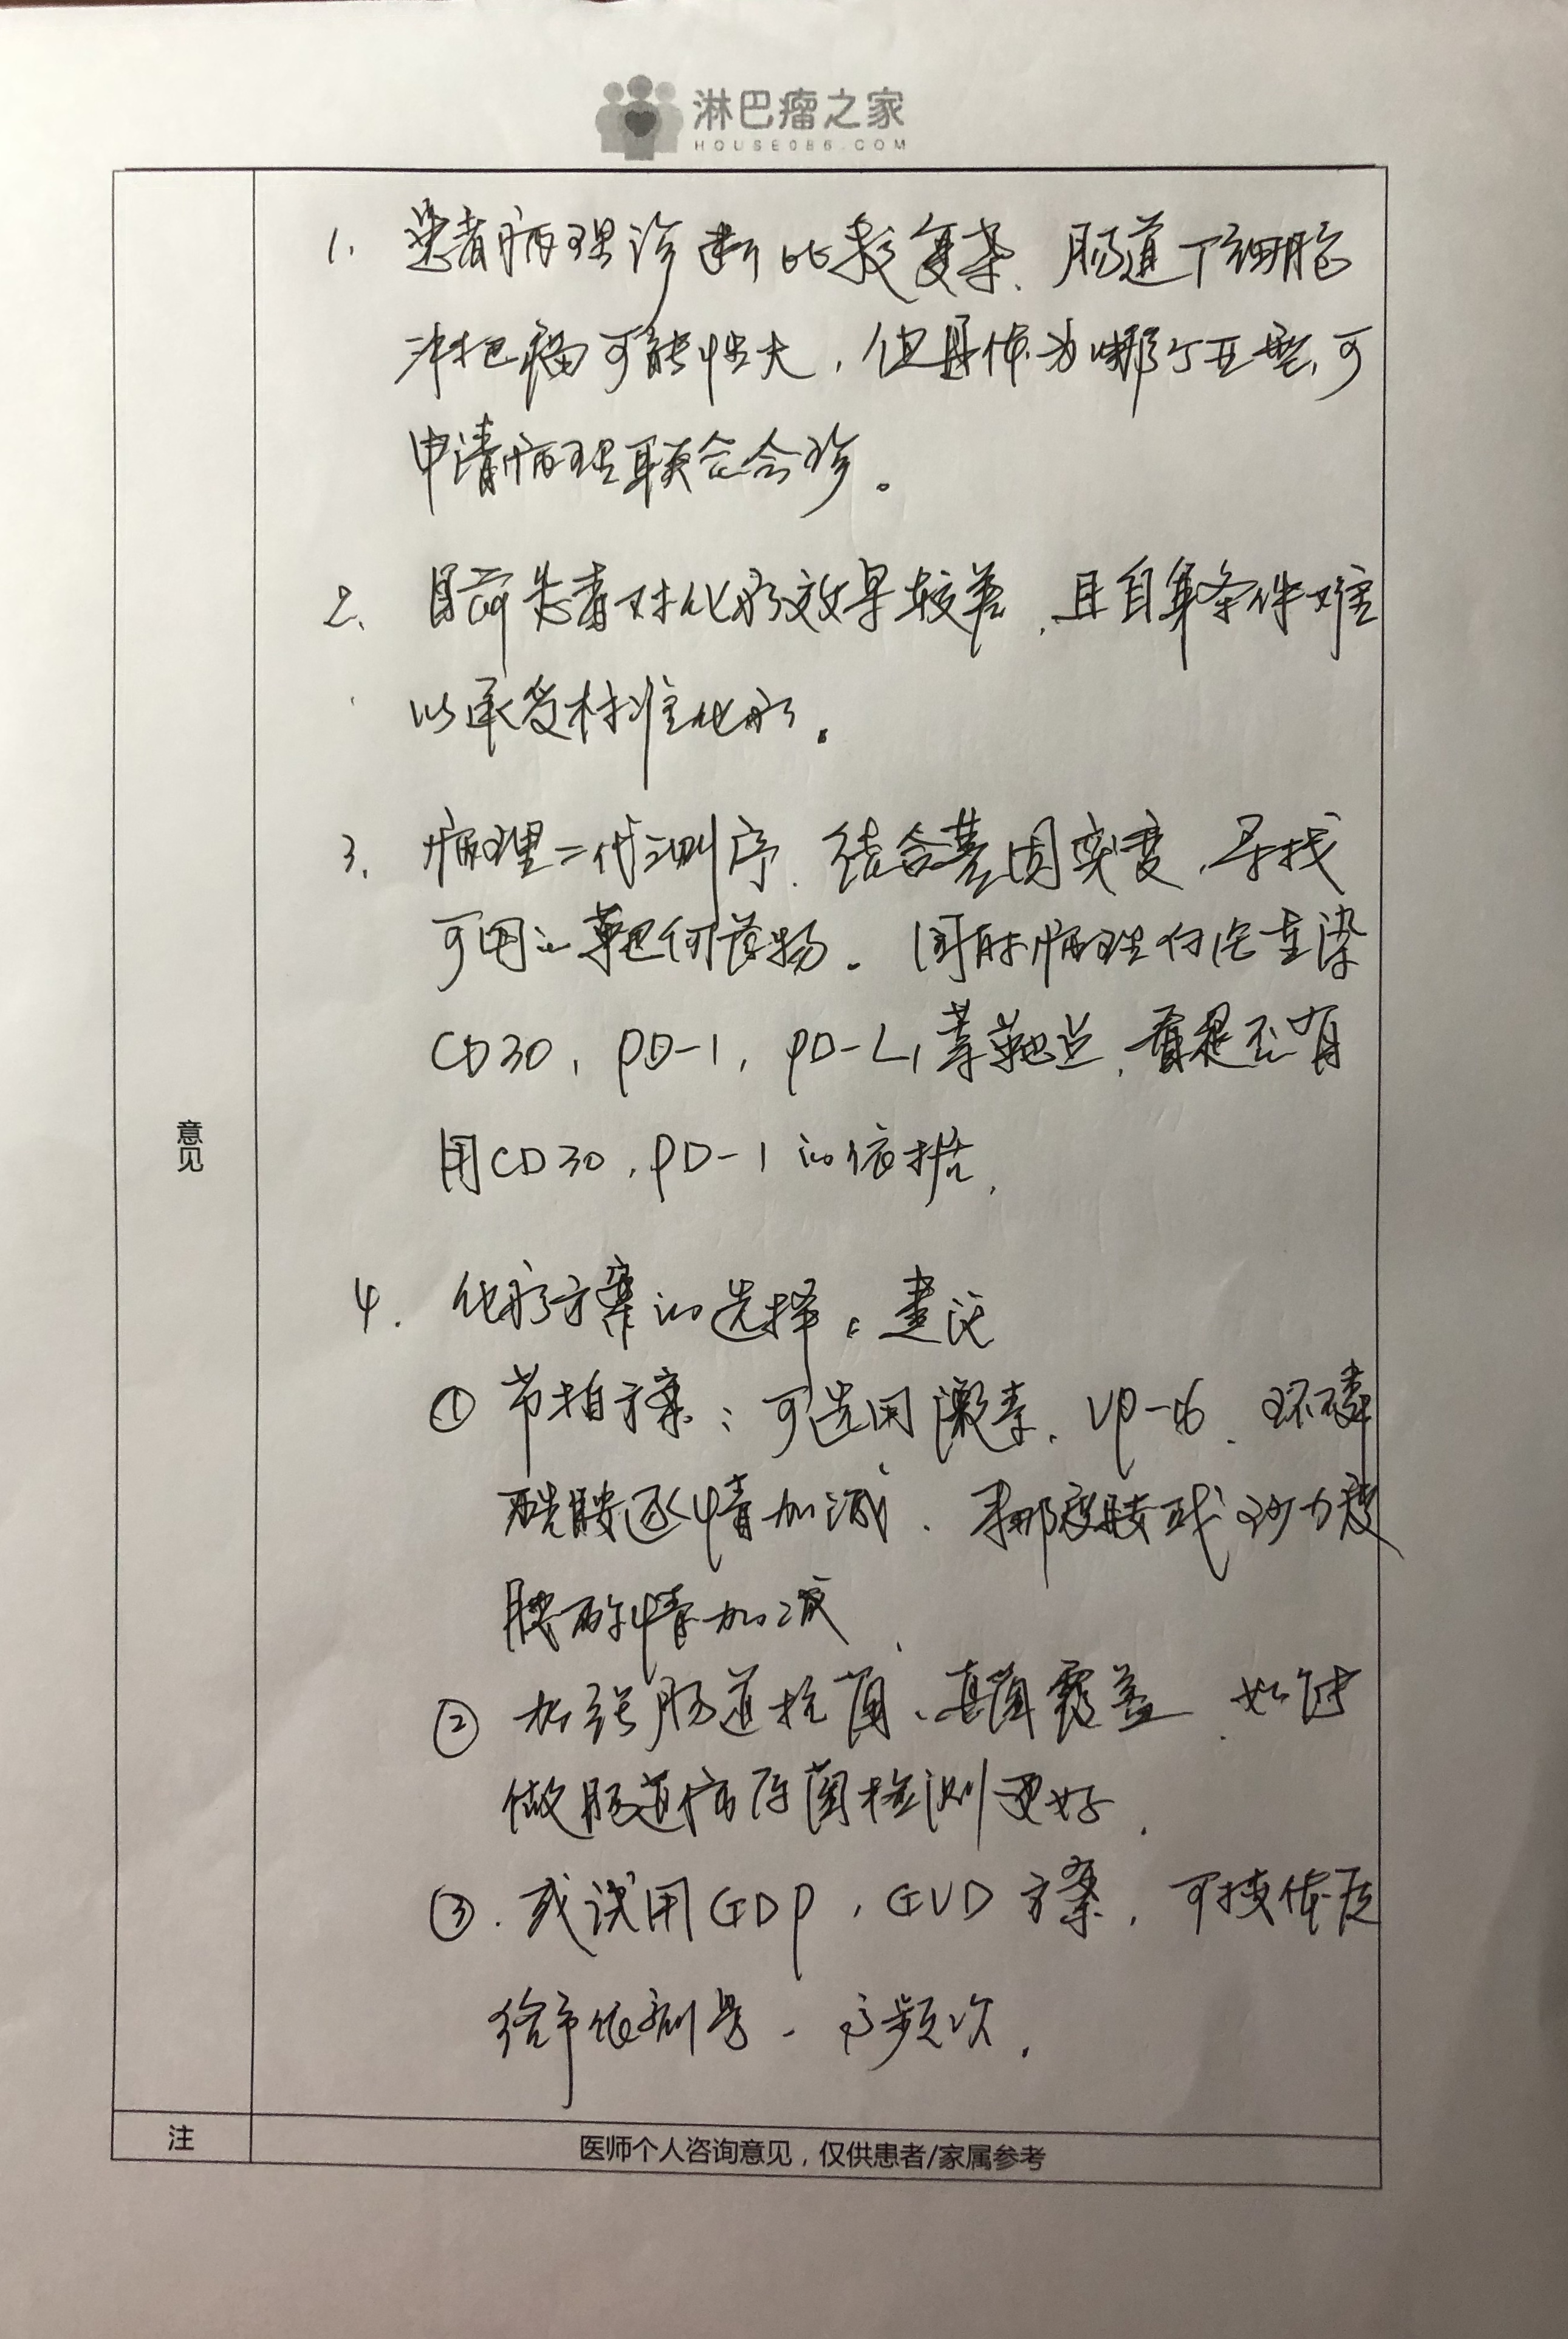 淋巴瘤之家
HOUSE086.COM
1. 患者病理诊断比较复杂、肠道T细胞
淋巴瘤可能性大，但具体为哪个亚型，可
申请病理联合会诊。
2. 目前患者对化疗效果较差，且自身条件难
以承受标准化疗。
3. 病理二代测序，结合基因突变，寻找
可用的靶向药物。同时病理切片重染
CD30，PD-1，PD-L1等靶点，看是否有
用CD30，PD-1的依据。
意见
4. 化疗方案的选择。建议
① 节拍方案：可选用激素、VP-16、环磷
酰胺酌情加减、来那度胺或沙力度
胺酌情加减
② 加强肠道抗菌、真菌覆盖，如能
做肠道病原菌检测更好。
③. 或试用GDP，GVD方案，可按体质
给予低剂量、高频次。
注
医师个人咨询意见，仅供患者/家属参考